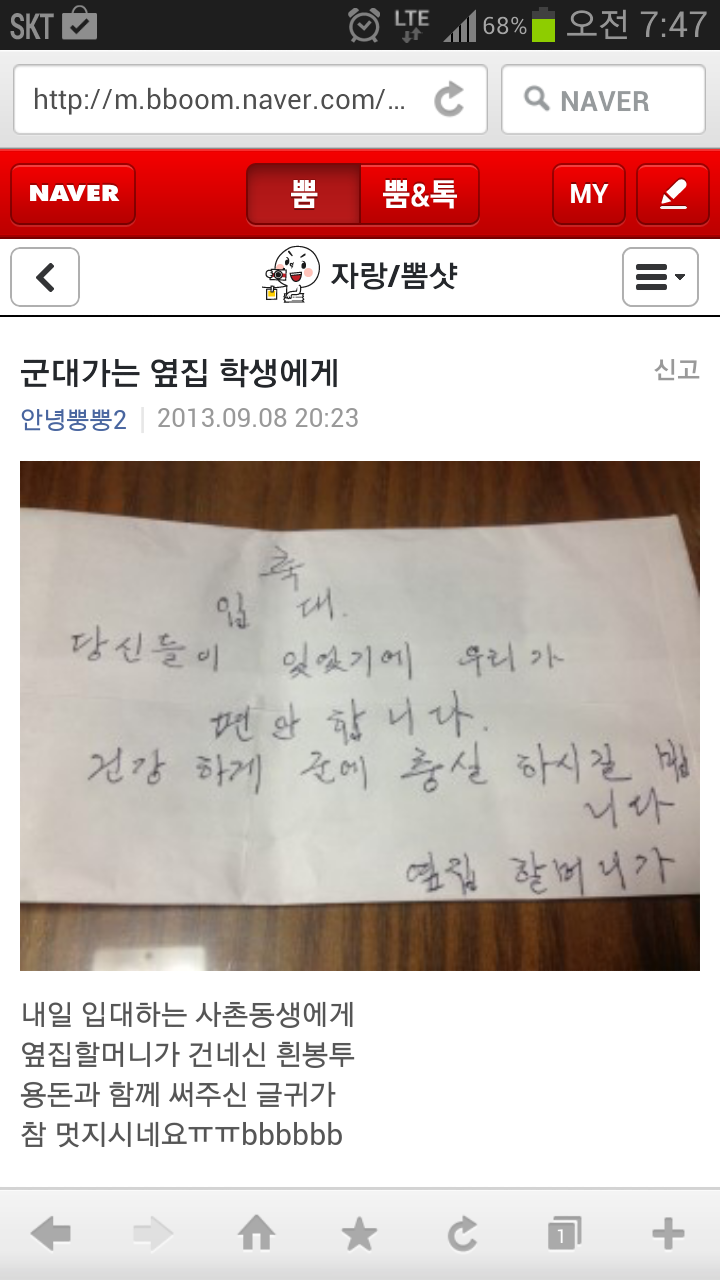 SKT LTE 68% 오전 7:47
http://m.bboom.naver.com/... NAVER
NAVER 뿜 뿜&톡 MY
자랑/뽐샷
군대가는 옆집 학생에게 신고
안녕뿡뿡2 2013.09.08 20:23
축
입 대.
당신들이 있었기에 우리가
편안 합니다.
건강 하게 군에 충실 하시길 빕
니다
옆집 할머니가
내일 입대하는 사촌동생에게
옆집할머니가 건네신 흰봉투
용돈과 함께 써주신 글귀가
참 멋지시네요ㅠㅠbbbbbb
1